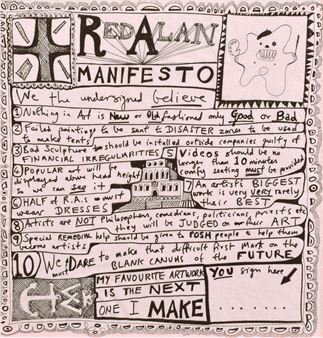 RED ALAN
MANIFESTO
We the undersigned believe
1) Nothing in Art is New or Old fashioned only Good or Bad
2) Failed paintings to be sent to DISASTER zones to be used as tents
3) Bad Sculpture to should be installed outside companies guilty of FINANCIAL IRREGULARITIES
4) POPULAR art will be displayed above head height so I can see it
5 Videos should be no longer than 10 minutes comfy seating must be provided
6) HALF of R.A.s must wear DRESSES
7) An artists BIGGEST work is very very rarely their BEST
8) Artists are NOT Philosophers, comedians, politicians, priests etc they will be JUDGED on their ART
9) Special REMEDIAL help should be given to POSH people to help them become artists
10 We must DARE to make that difficult First Mark on the BLANK CANVAS of the FUTURE
MY FAVOURITE ARTWORK
IS THE NEXT
ONE I MAKE
You sign here